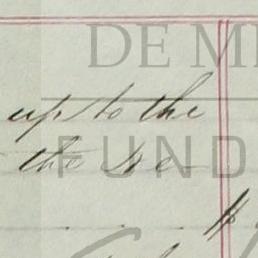 DE M
up to the
the se
FUND